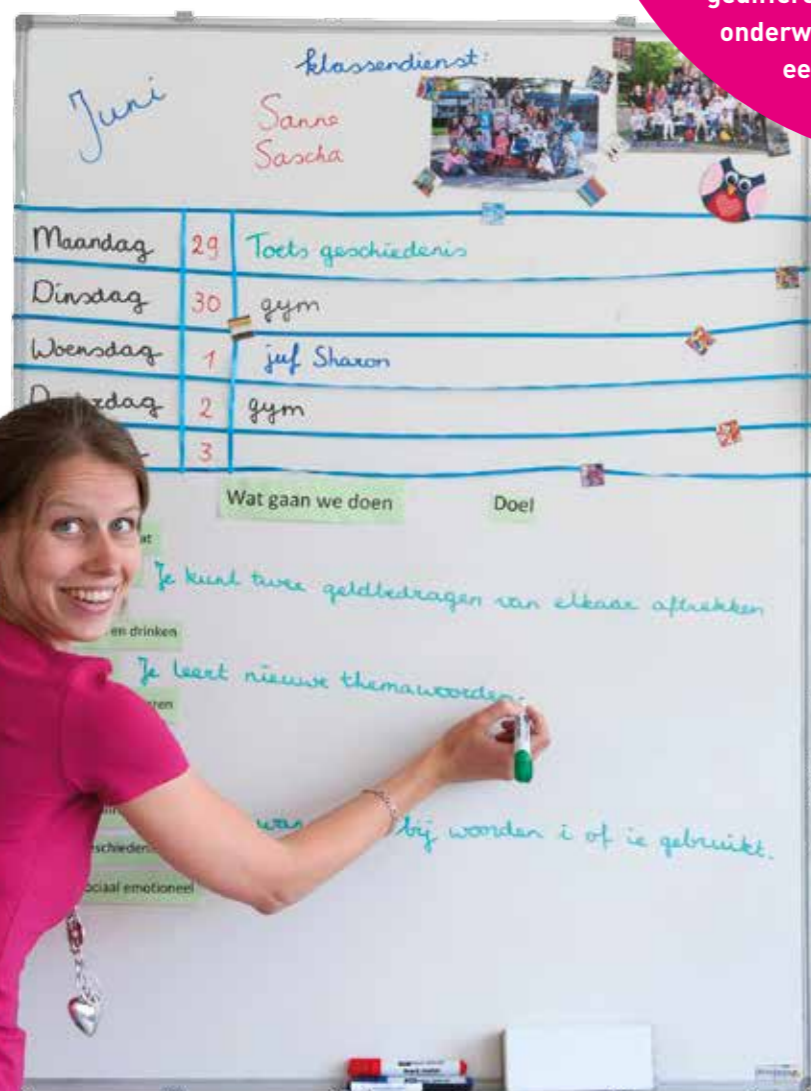 onderw
ee
klassendienst:
Juni
Sanne
Sascha
Maandag 29 Toets geschiedenis
Dinsdag 30 gym
Woensdag 1 juf Sharon
dag 2 gym
3
Wat gaan we doen Doel
at
Je kunt twee geldbedragen van elkaar aftrekken
en drinken
Je leert nieuwe themawoorden.
ren
wan bij woorden i of ie gebruikt.
schieden
ociaal emotioneel